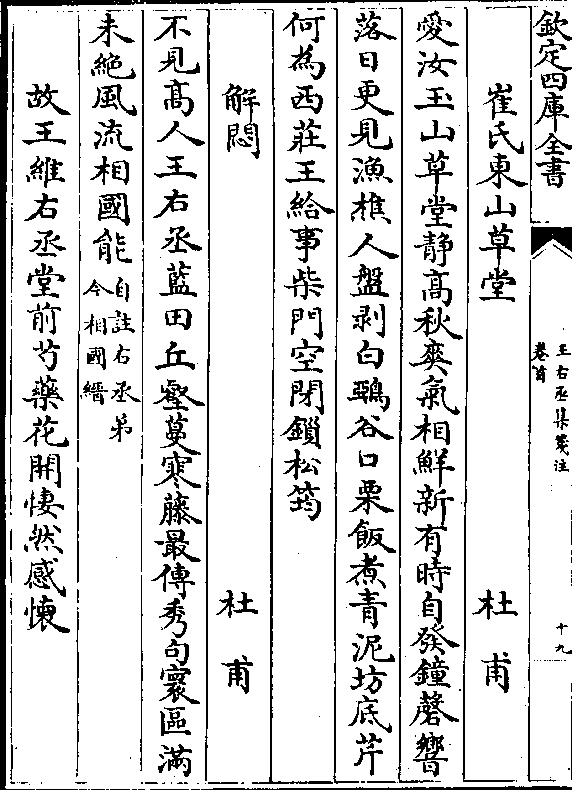 欽定四庫全書
王右丞集箋注
卷首
十九
崔氏東山草堂 杜甫
愛汝玉山草堂靜高秋爽氣相鮮新有時自發鐘磬響
落日更見漁樵人盤剥白鵶谷口栗飯煮青泥坊底芹
何為西莊王給事柴門空閉鎖松筠
解悶 杜甫
不見髙人王右丞藍田丘壑蔓寒藤最傳秀句寰區滿
未絶風流相國能自註右丞弟今相國縉
故王維右丞堂前芍藥花開悽然感懷